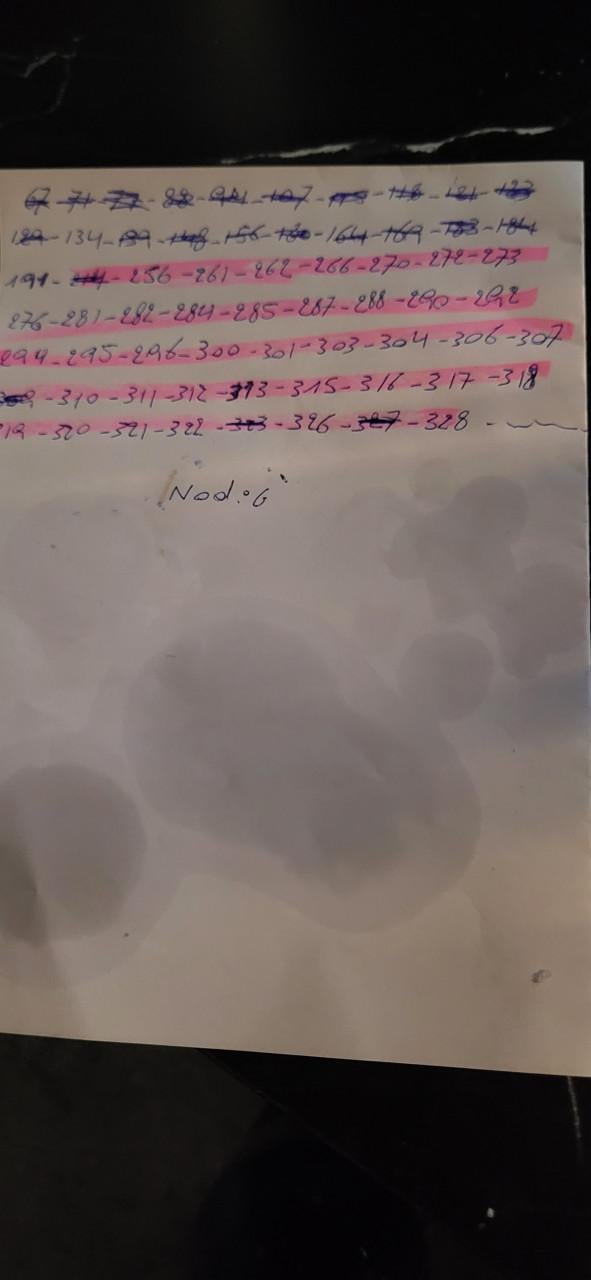 67-71-77-88-94-107- -118-121-123
129-134-139-148-156-160-164-169-183-184
191- -256-261-262-266-270-272-273
276-281-282-284-285-287-288-290-292
294-295-296-300-301-303-304-306-307
-310-311-312-313-315-316-317-318
319-320-321-322-323-326-327-328-
Nod:6